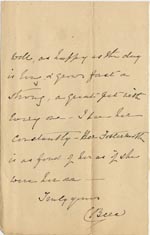 well, as happy as the day
is long & grows fast &
strong, a great pet with
every one — I see her
constantly. Her Foster mother
is as fond of her as if she
were her own —
Truly yours